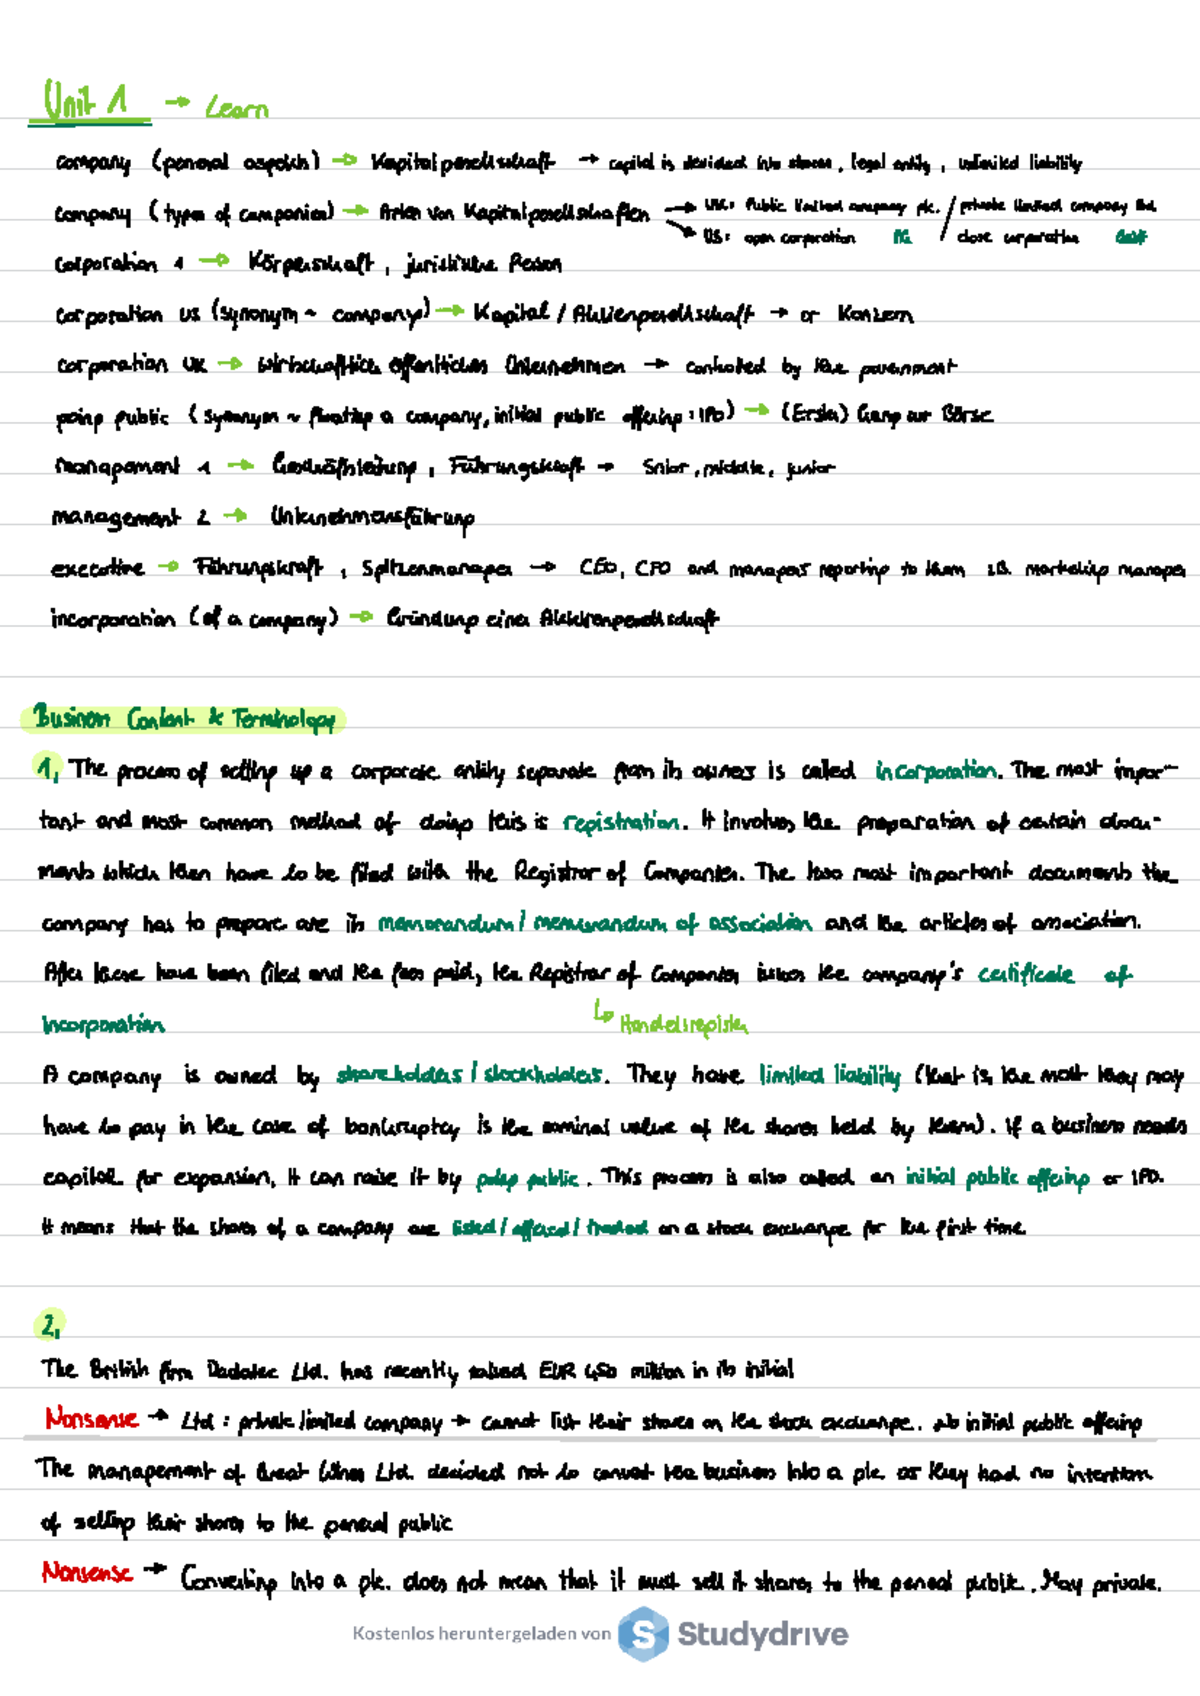 Unit 1 → Learn
company (general aspects) → Kapitalgesellschaft → capital is devided into shares, legal entity, unlimited liability
company (types of companies) → Arten von Kapitalgesellschaften → UK: Public limited company plc. / private limited company ltd.
→ US: open corporation AG / close corporation GmbH
corporation 1 → Körperschaft, juristische Person
corporation US (synonym ~ company) → Kapital / Aktiengesellschaft → or Konzern
corporation UK → wirtschaftlich öffentliches Unternehmen → controlled by the government
going public (synonym ~ floating a company, initial public offering: IPO) → (Erster) Gang zur Börse
management 1 → Geschäftsleitung, Führungskraft → Snior, middle, junior
management 2 → Unternehmensführung
executive → Führungskraft, Spitzenmanager → CEO, CFO and managers reporting to them z.B. marketing manager
incorporation (of a company) → Gründung einer Aktiengesellschaft
Business Content & Terminology
1, The process of setting up a corporate entity separate from its owners is called incorporation. The most impor-
tant and most common method of doing this is registration. It involves the preparation of certain docu-
ments which then have to be filed with the Registrar of Companies. The two most important documents the
company has to prepare are its memorandum / memorandum of association and the articles of association.
After these have been filed and the fees paid, the Registrar of Companies issues the company's certificate of
incorporation ↳ Handelsregister
A company is owned by shareholders / stockholders. They have limited liability (that is, the most they may
have to pay in the case of bankruptcy is the nominal value of the shares held by them). If a business needs
capital for expansion, it can raise it by going public. This process is also called an initial public offering or IPO.
It means that the shares of a company are listed / offered / traded on a stock exchange for the first time.
2,
The British firm Dadatec Ltd. has recently raised EUR 450 million in its initial
Nonsense → Ltd: private limited company → cannot list their shares on the stock exchange. no initial public offering
The management of Great Wines Ltd. decided not to convert the business into a plc as they had no intention
of selling their shares to the general public
Nonsense → Converting into a plc. does not mean that it must sell it shares to the general public. May private.
Kostenlos heruntergeladen von Studydrive